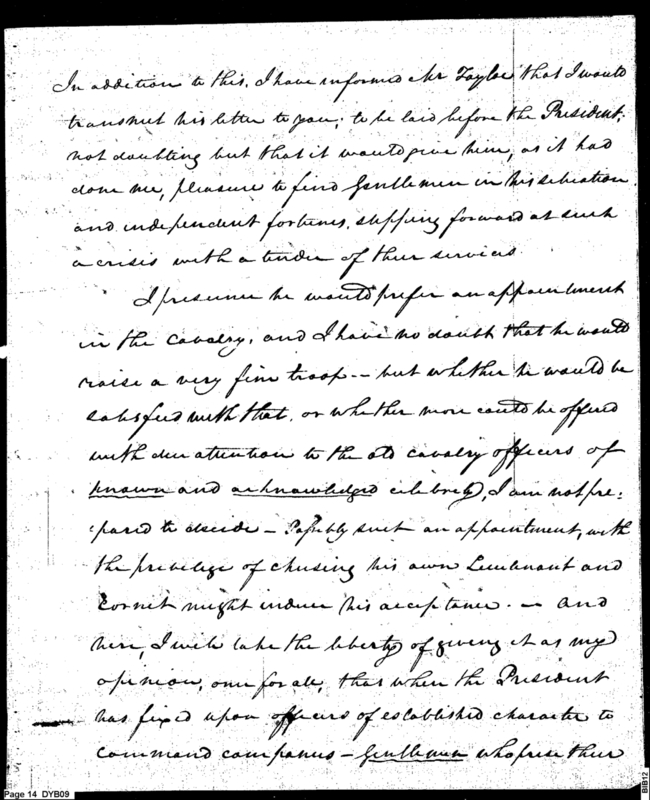 In addition to this, I have informed Mr Tayloe that I would
transmit his letter to you; to be laid before the President;
not doubting but that it would give him, as it had
done me, pleasure to find Gentlemen in his situation
and independent fortunes, stepping forward at such
a crisis with a tender of their services.
I presume he would prefer an appointment
in the cavalry, and I have no doubt that he would
raise a very fine troop -- but whether he would be
satisfied with that, or whether more could be offered
with due attention to the old cavalry officers of
known and acknowledged celebrity, I am not pre:
:pared to decide — Possibly such an appointment, with
the privilege of chusing his own Lieutenant and
Cornet might induce his acceptance. — And
here, I will take the liberty of giving it as my
opinion, once for all, that when the President
has fixed upon officers of established character to
command companies — Gentlemen who prise their
Page 14 DYB09
BIB12